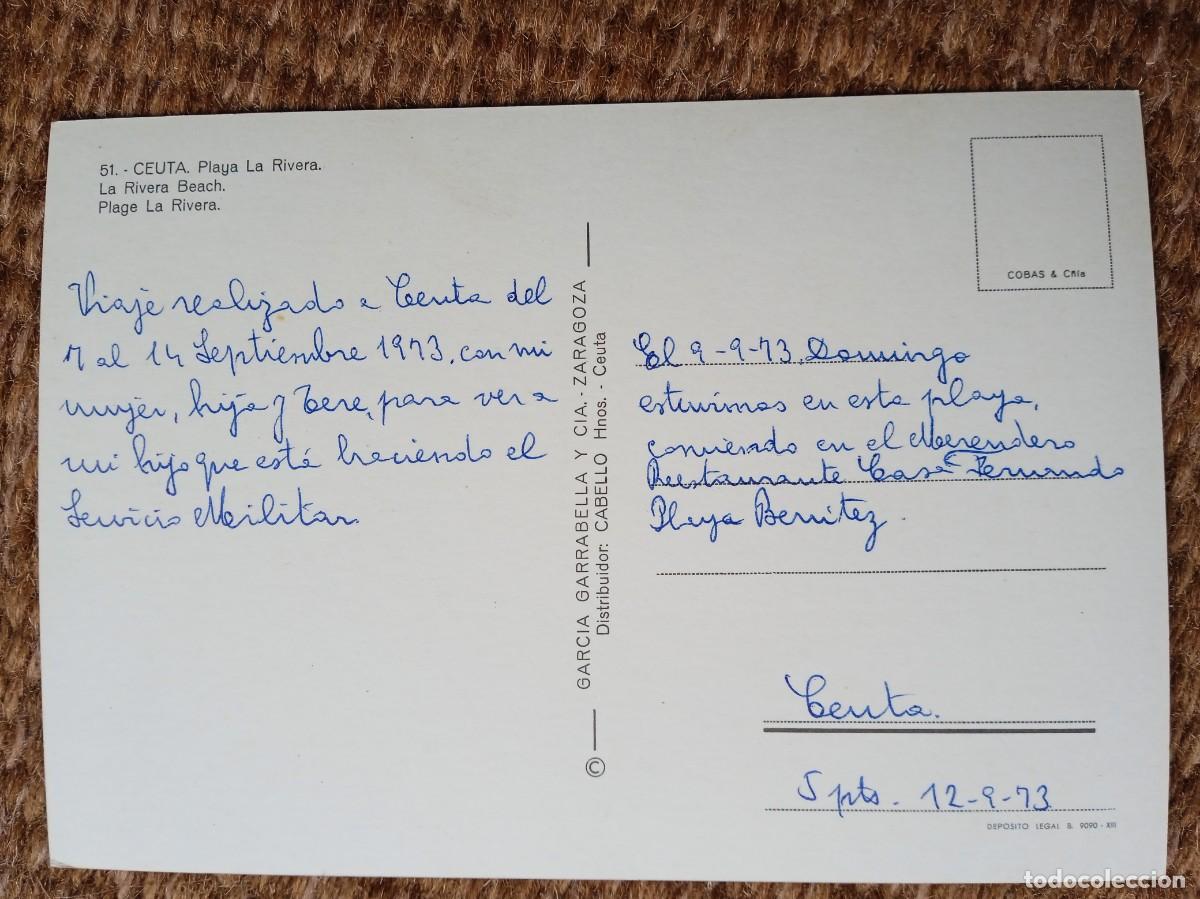 51. - CEUTA. Playa La Rivera.
La Rivera Beach.
Plage La Rivera.
Viaje realizado a Ceuta del
7 al 14 Septiembre 1973. con mi
mujer, hija y Tere, para ver a
mi hijo que está haciendo el
Servicio Militar.
GARCIA GARRABELLA Y CIA. - ZARAGOZA
Distribuidor: CABELLO Hnos. - Ceuta
©
COBAS & Cñía
El 9-9-73, Domingo
estuvimos en esta playa,
comiendo en el Merendero
Restaurante Casa Fernando
Playa Benitez.
Ceuta.
5 pts. 12-9-73
DEPOSITO LEGAL B. 9090 - XIII
todocoleccion